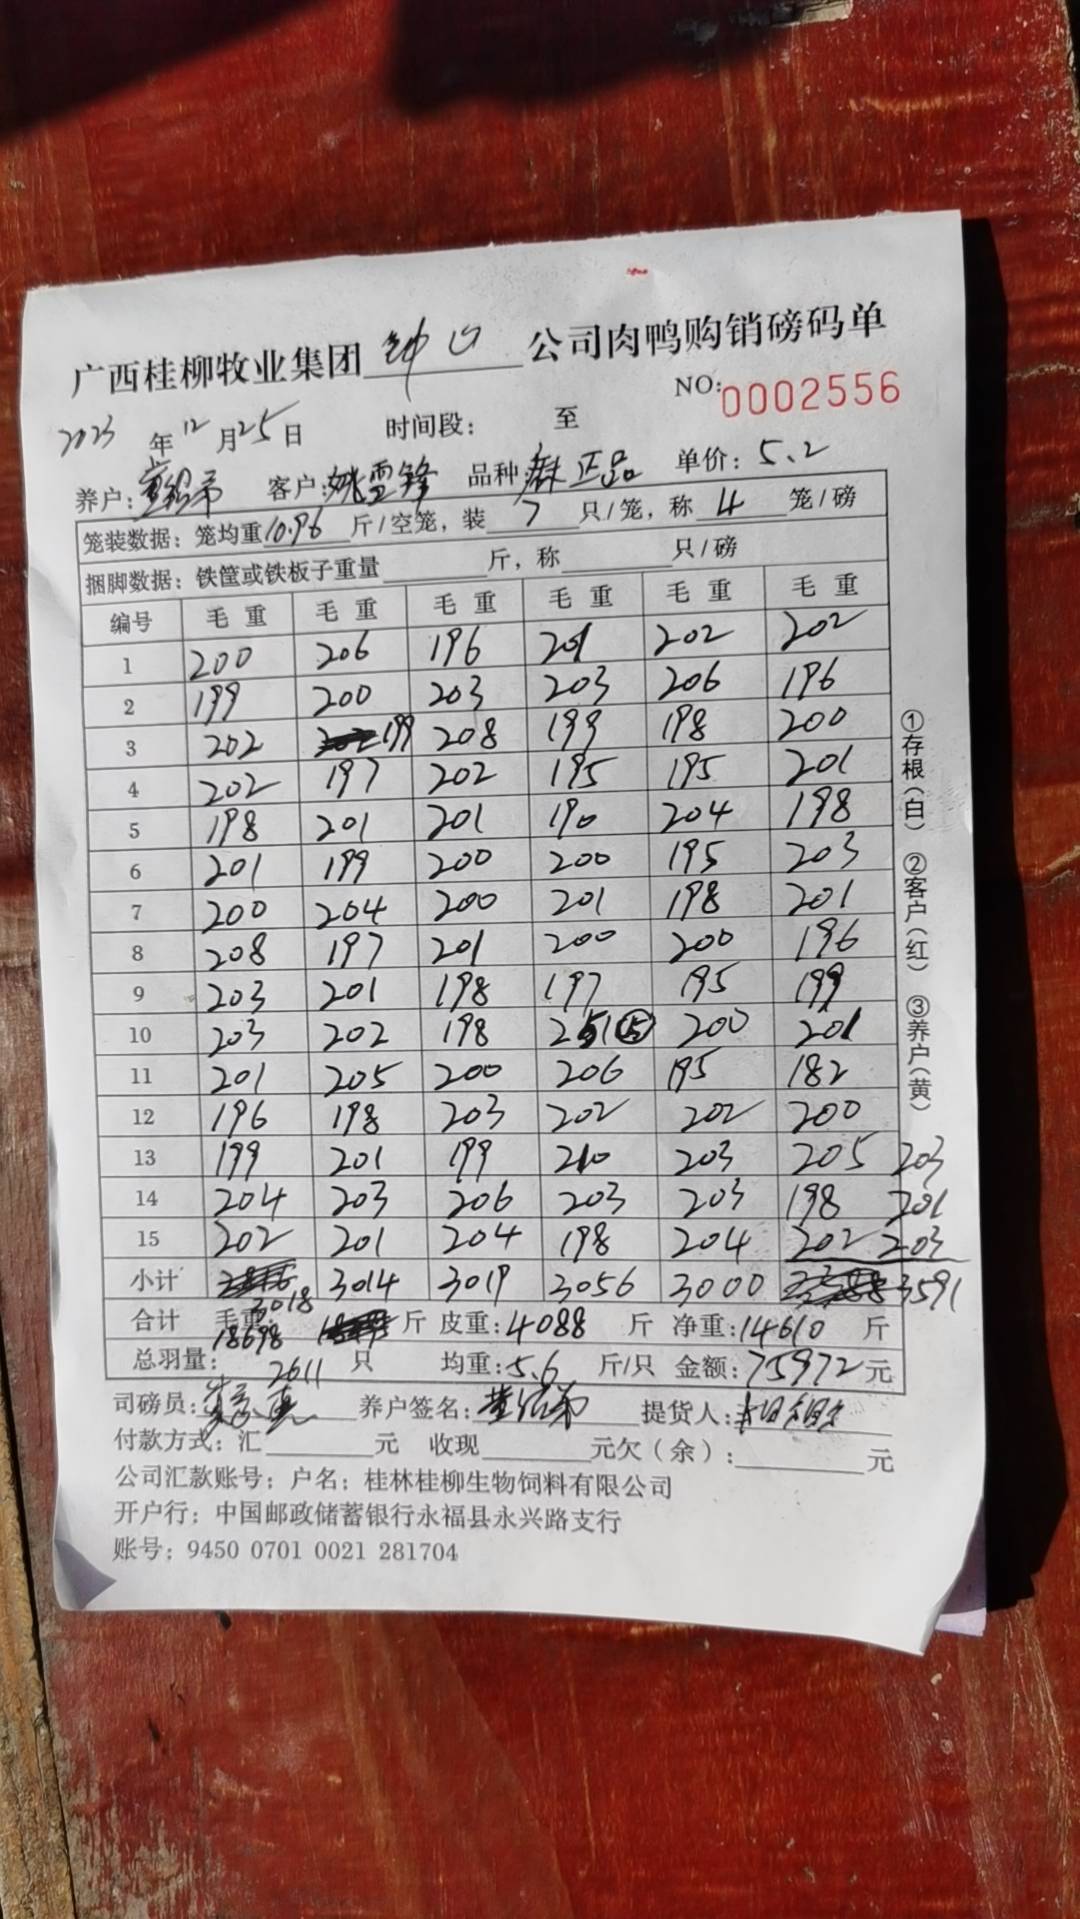 广西桂柳牧业集团 钟山 公司肉鸭购销磅码单
NO: 0002556
2023 年 12 月 25 日 时间段： 至
养户: 客户: 姚雪锋 品种 麻正品 单价: 5.2
笼装数据：笼均重 10.96 斤/空笼，装 7 只/笼，称 4 笼/磅
捆脚数据：铁筐或铁板子重量 斤，称 只/磅
编号 毛重 毛重 毛重 毛重 毛重 毛重
1 200 206 196 201 202 202
2 199 200 203 203 206 196
3 202 199 208 199 198 200
4 202 197 202 195 195 201
5 198 201 201 190 204 198
6 201 199 200 200 195 203
7 200 204 200 201 198 201
8 208 197 201 200 200 196
9 203 201 198 197 195 199
10 203 202 198 251 ⑤ 200 201
11 201 205 200 206 195 182
12 196 198 203 202 202 200
13 199 201 199 210 203 205 203
14 204 203 206 203 203 198 201
15 202 201 204 198 204 202 203
小计 3018 3014 3019 3056 3000 3591
合计 毛重: 18698 斤 皮重: 4088 斤 净重: 14610 斤
总羽量: 2611 只 均重: 5.6 斤/只 金额: 75972 元
司磅员: 养户签名: 提货人:
付款方式: 汇 元 收现 元欠（余）: 元
公司汇款账号：户名：桂林桂柳生物饲料有限公司
开户行：中国邮政储蓄银行永福县永兴路支行
账号：9450 0701 0021 281704
①存根（白） ②客户（红） ③养户（黄）